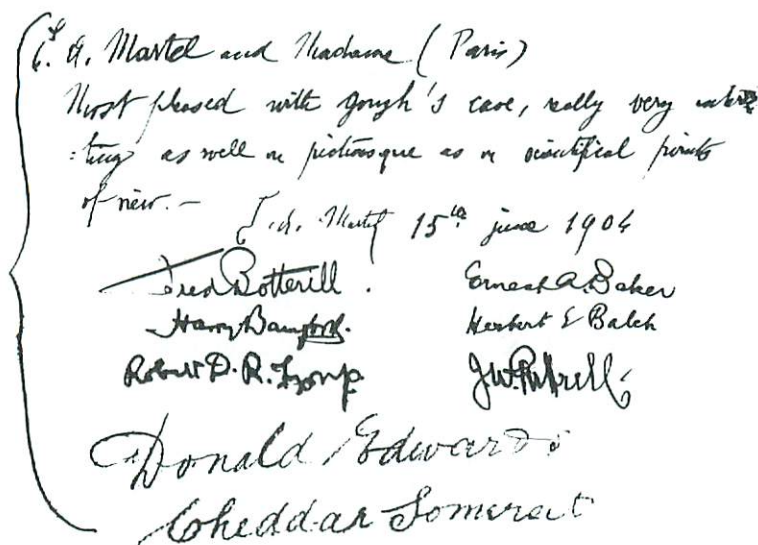 E. A. Martel and Madame (Paris)
Most pleased with gough's cave, really very interes
:ting as well in picturesque as in scientifical points
of view. —
E. A. Martel 15th june 1904
Fred Botterill. Ernest A. Baker
Harry Bamforth. Herbert E Balch
Robert D. R. Troup. J.W. Puttrell
Donald Edwards
Cheddar Somerset